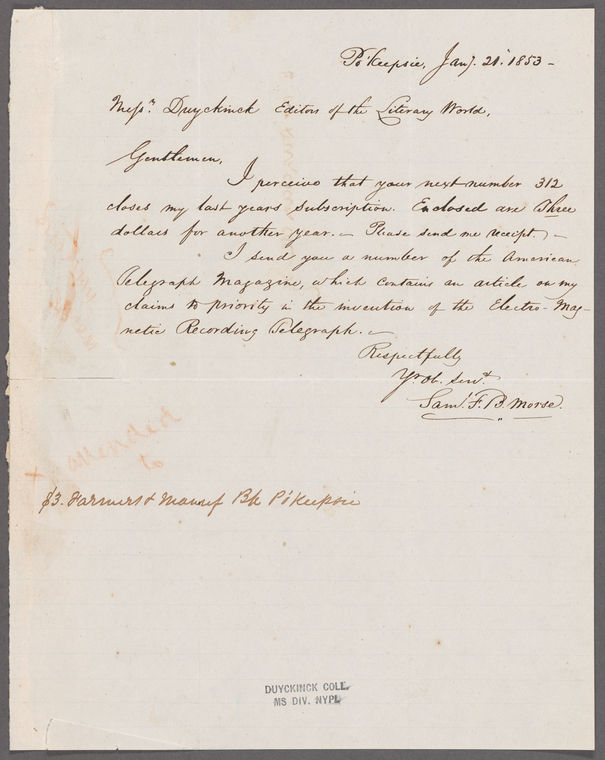 Po'Keepsie, Jany. 21. 1853 –
Messrs. Duyckinck Editors of the Literary World,
Gentlemen,
I perceive that your next number 312
closes my last years subscription. Enclosed are Three
dollars for another year. – Please send me receipt, –
I send you a number of the American
Telegraph Magazine, which contains an article on my
claims to priority in the invention of the Electro-Mag-
netic Recording Telegraph. –
Respectfully
Yr Ob. Servt.
Saml. F. B. Morse.
x attended
to
$3. Farmers & Manuf Bk P'Keepsie
DUYCKINCK COLL.
MS DIV. NYPL